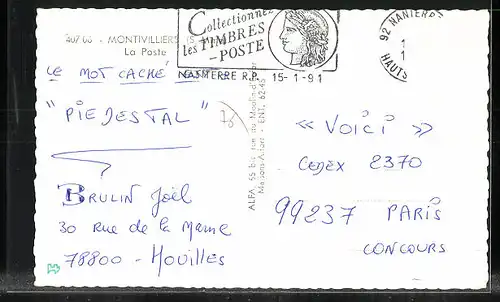 407.06 - MONTIVILLIERS
La Poste
Collectionnez
les TIMBRES
-POSTE
NANTERRE R.P. 15-1-91
92 NANTERRE
HAUTS
LE MOT CACHÉ
"PIEDESTAL"
BRULIN Joël
30 rue de la Marne
78800 - Houilles
ALFA, 55 bis rue du Moulin
Maisons-Alfort - ENT. 62-45
« VOICI »
CEDEX 2370
99237 PARIS
CONCOURS